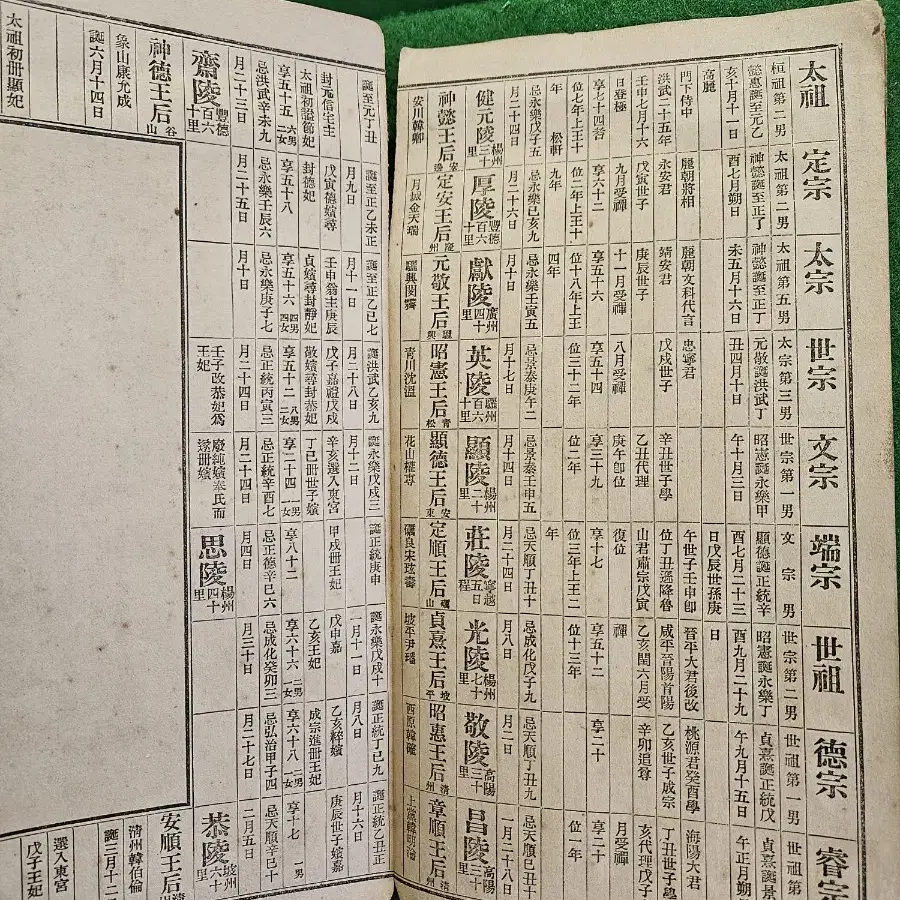 太祖
桓祖第二男
懿惠誕至元乙
亥十月十一日
高麗
門下侍中
洪武二十五年
壬申七月十六
日登極
享七十四
位七年上王十
年 松軒
忌永樂戊子五
月二十四日
健元陵 楊州三十里
神懿王后 安邊
安川韓卿
定宗
太祖第二男
神懿誕至正丁
酉七月朔日
麗朝將相
永安君
戊寅世子
九月受禪
享六十二
位二年上王十
九年
忌永樂己亥九
月二十六日
厚陵 豐德百六十里
定安王后 慶州
月城金天瑞
太宗
太祖第五男
神懿誕至正丁
未五月十六日
麗朝文科代言
靖安君
庚辰世子
十一月受禪
享五十六
位十八年上王
四年
忌永樂壬寅五
月十日
獻陵 廣州四十里
元敬王后 驪興
驪興閔霽
世宗
太宗第三男
元敬誕洪武丁
丑四月十日
忠寧君
戊戌世子
八月受禪
享五十四
位三十二年
忌景泰庚午二
月十七日
英陵 驪州百六十里
昭憲王后 青松
青川沈溫
文宗
世宗第一男
昭憲誕永樂甲
午十月三日
辛丑世子學
乙丑代理
庚午卽位
享三十九
位二年
忌景泰壬申五
月十四日
顯陵 楊州二十里
顯德王后 安東
花山權專
端宗
文宗男
顯德誕正統辛
酉七月二十三
日戊辰世孫庚
午世子壬申卽
位丁丑遜降魯
山君肅宗戊寅
復位
享十七
位三年上王二
年
忌天順丁丑十
月二十四日
莊陵 寧越五日程
定順王后 礪山
礪良宋玹壽
世祖
世宗第二男
昭憲誕永樂丁
酉九月二十九
日
晉平大君後改
咸平晉陽首陽
乙亥閏六月受
禪
享五十二
位十三年
忌成化戊子九
月八日
光陵 楊州七十里
貞熹王后 坡平
坡平尹璠
德宗
世祖第一男
貞熹誕正統戊
午九月十五日
桃源君癸酉學
乙亥世子成宗
辛卯追尊
享二十
忌天順丁丑九
月二日
敬陵 高陽三十里
昭惠王后 清州
西原韓確
睿宗
世祖第
貞熹誕景
午正月朔
海陽大君
丁丑世子學
亥代理戊子
月受禪
忌天順己丑十
一月二十八日
昌陵 高陽三十里
章順王后 清州
上黨韓明澮
誕至元丁丑
封元信宅主
太祖初諡節妃
享五十五 六男二女
忌洪武辛未九
月二十三日
齋陵 豐德百六十里
神德王后 谷山
象山康允成
誕六月十四日
太祖初册顯妃
誕至正乙未正
月九日
戊寅德嬪尋
封德妃
享五十八
忌永樂壬辰六
月二十五日
誕至正乙巳七
月十一日
壬申翁主庚辰
貞嬪尋封靜妃
享五十六 四男四女
忌永樂庚子七
月十日
誕洪武乙亥九
月二十八日
戊子嘉禮戊戌
敬嬪尋封恭妃
享五十二 八男二女
忌正統丙寅三
月二十四日
壬子改恭妃爲
王妃
誕永樂戊戌三
月十二日
辛亥選入東宮
丁巳册世子嬪
享二十四 一男一女
忌正統辛酉七
月二十四日
廢純嬪奉氏而
遂册嬪
誕正統庚申
甲戌册王妃
享八十二
忌正德辛巳六
月四日
思陵 楊州四十里
誕永樂戊戌十
一月十一日
戊申嘉
乙亥王妃
享六十六 二男一女
忌成化癸卯三
月三十日
誕正統丁巳九
月八日
乙亥粹嬪
成宗進册王妃
享六十八 二男一女
忌弘治甲子四
月二十七日
誕正統乙丑正
月十六日
庚辰世子嬪嘉
享十七 一男
忌天順辛巳十
二月五日
恭陵 坡州六十里
安順王后 清
清州韓伯倫
誕三月十二
選入東宮
戊子王妃